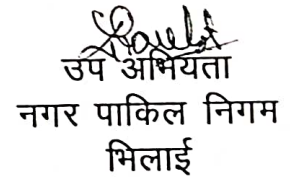 उप अभियता
नगर पाकिल निगम
भिलाई